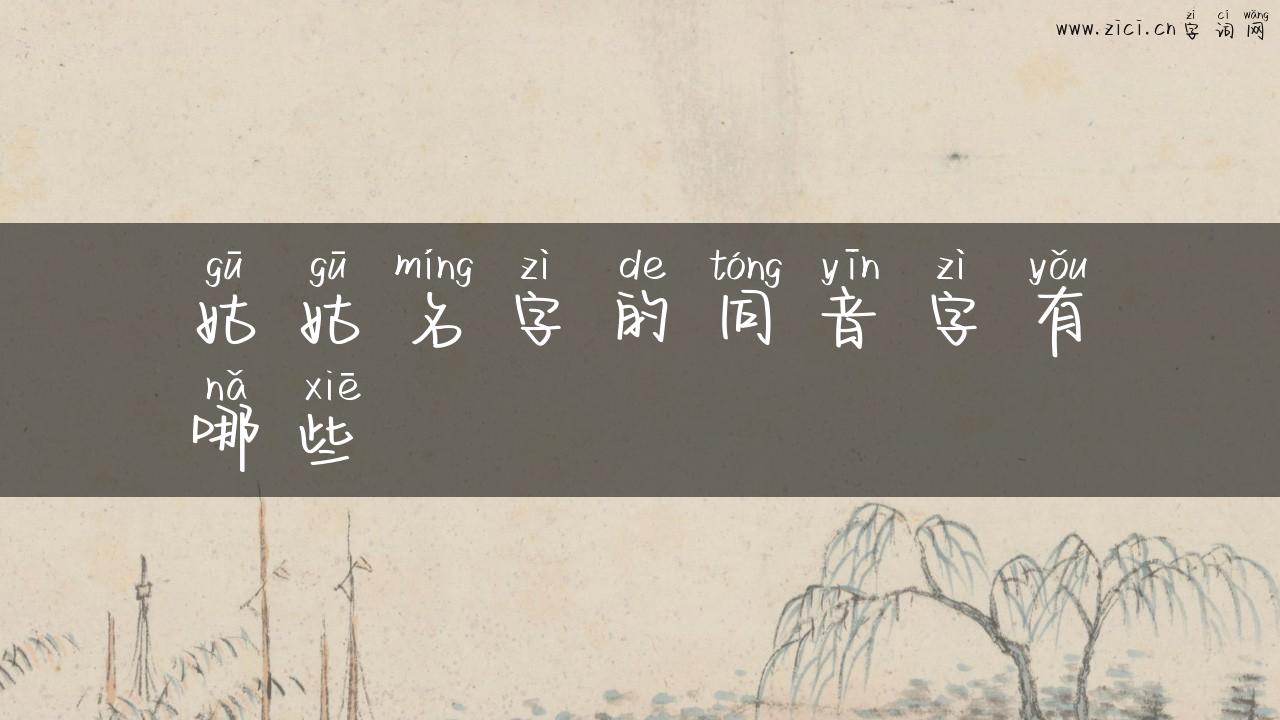 www.zici.cn zì cí wǎng
字词网
gū gū míng zì de tóng yīn zì yǒu
姑姑名字的同音字有
nǎ xiē
哪些